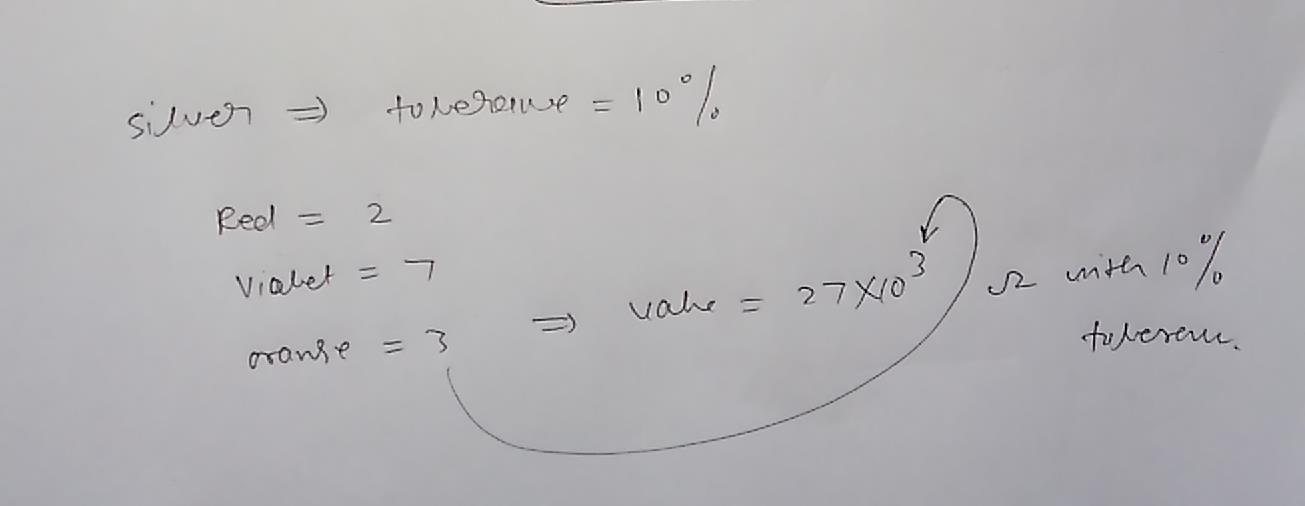 silver ⇒ tolerance = 10%
Red = 2
Violet = 7
orange = 3 ⇒ value = 27×10³ Ω with 10%
tolerance.